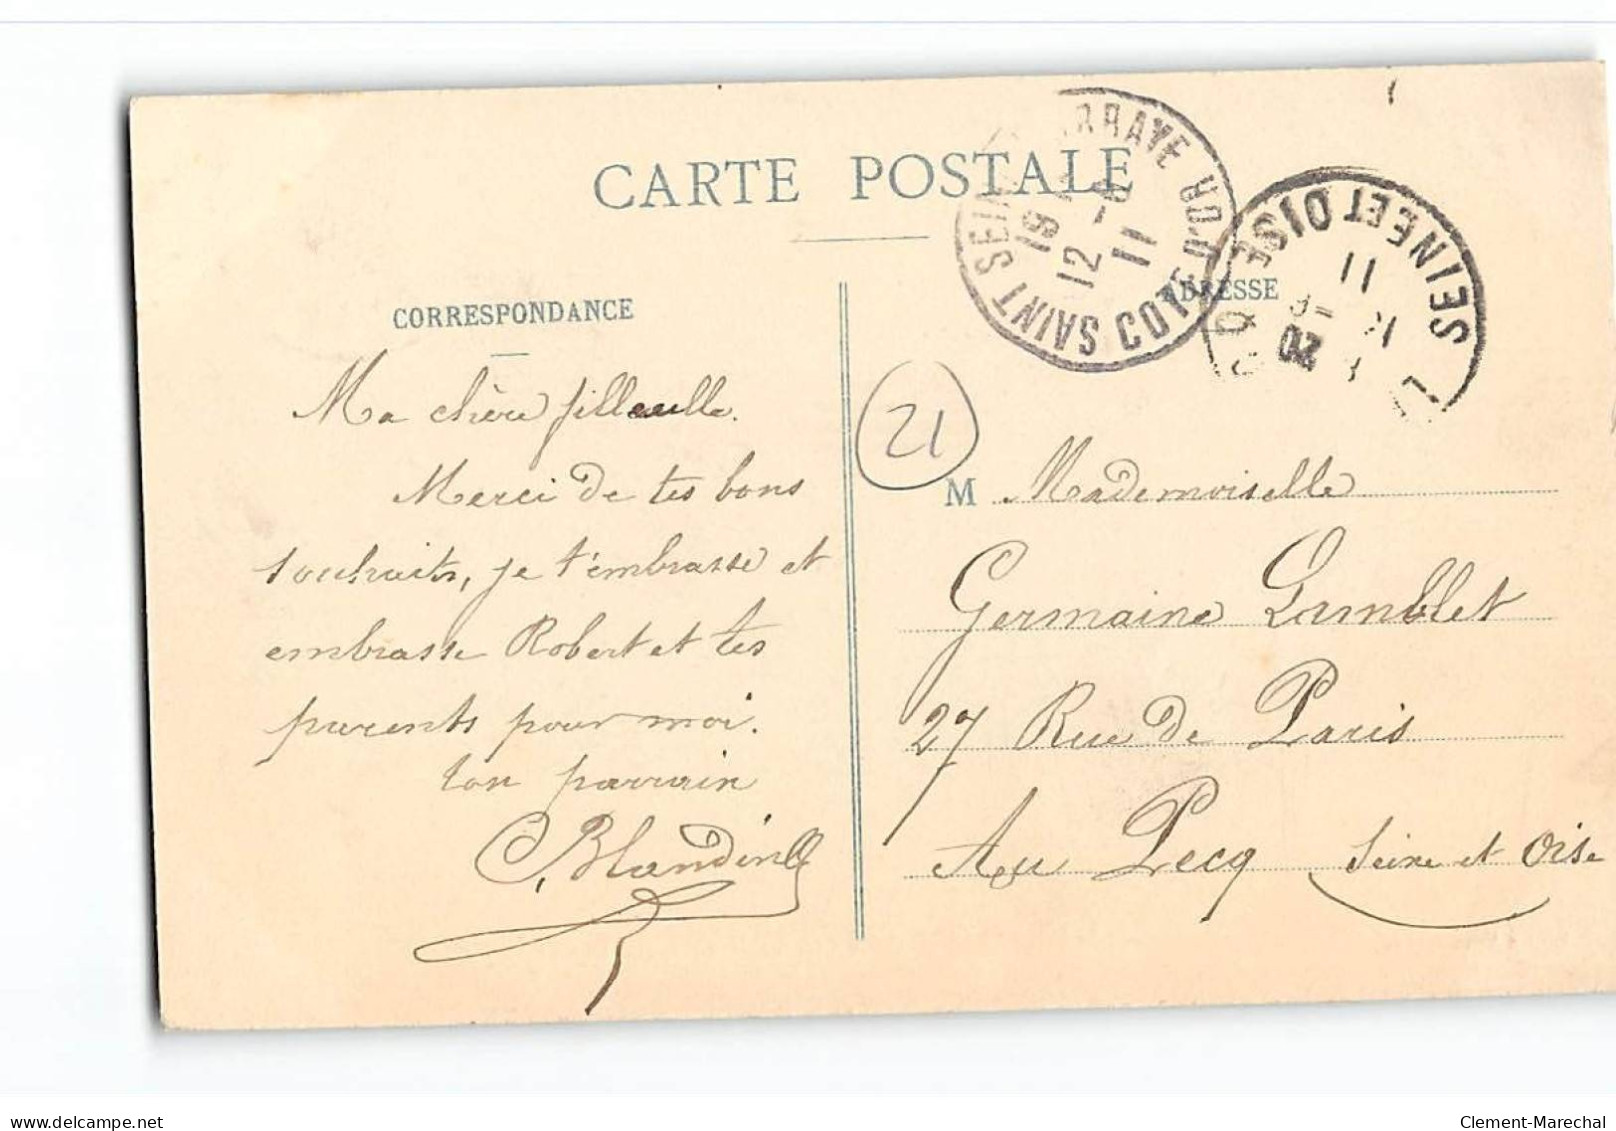 CARTE POSTALE
CORRESPONDANCE
Ma chère filleulle.
Merci de tes bons
souhaits, je t'embrasse et
embrasse Robert et tes
parents pour moi.
ton parrain
C. Blandin
SAINT SEINE L'ABBAYE
COTE D'OR
12
11
SEINE ET OISE
11
20
ADRESSE
21
M Mademoiselle
Germaine Lamblet
27 Rue de Paris
Au Pecq Seine et Oise
Clement-Marechal